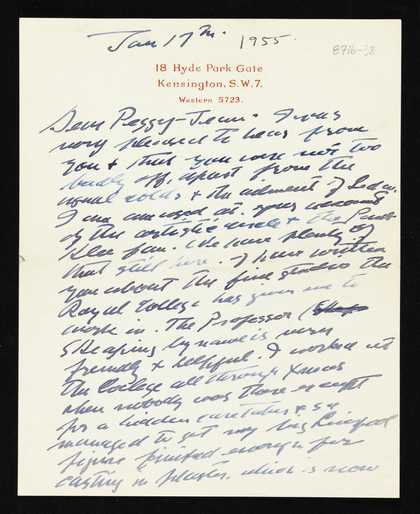 Jan 17th. 1955.
8716-38
18 Hyde Park Gate
Kensington, S.W.7.
Western 5723.
Dear Peggy-Jean. I was
very pleased to hear from
you & that you were not too
badly off, apart from the
usual colds & the ailment of
I am amused at your account
of the artistic circle & the Paul
Klee fan. We have plenty of
that still here. I have written
you about the fine studio the
Royal College has given me to
work in. The Professor
Skeaping by name is very
friendly & helpful. I worked at
the College all through Xmas
when nobody was there except
for a hidden caretaker & so
managed to get my big Liverpool
figure finished enough for
casting in plaster, which is now